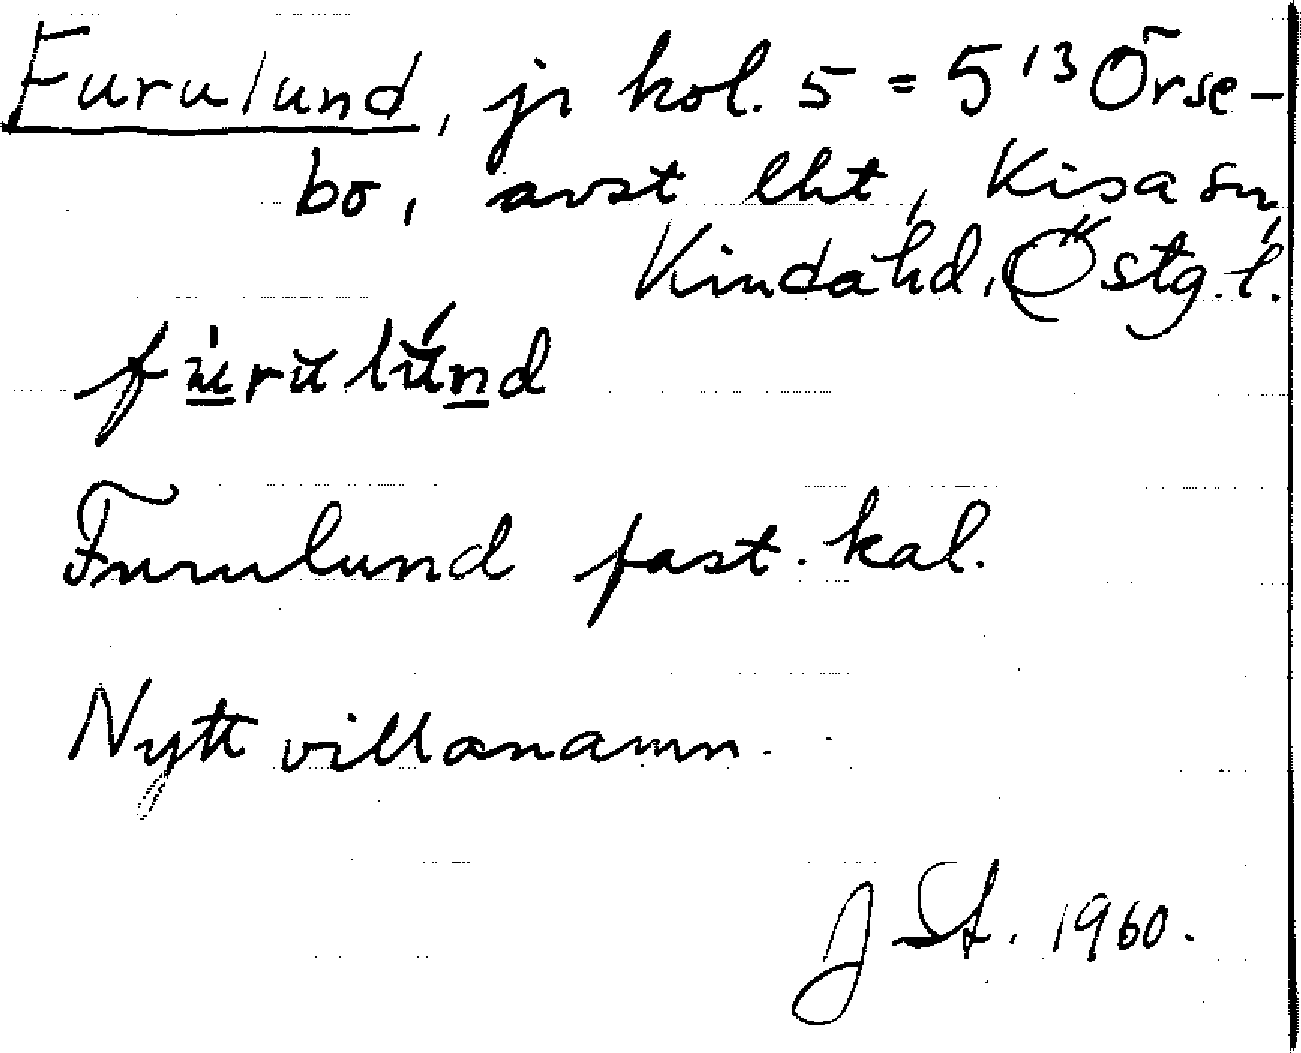 Furulund, jr kol. 5 = 5¹³ Örse-
bo, avst lht, Kisa sn,
Kinda hd, Östg. l.
fu̲rulún̲d
Furulund fast. kal.
Nytt villanamn.
J St. 1960.